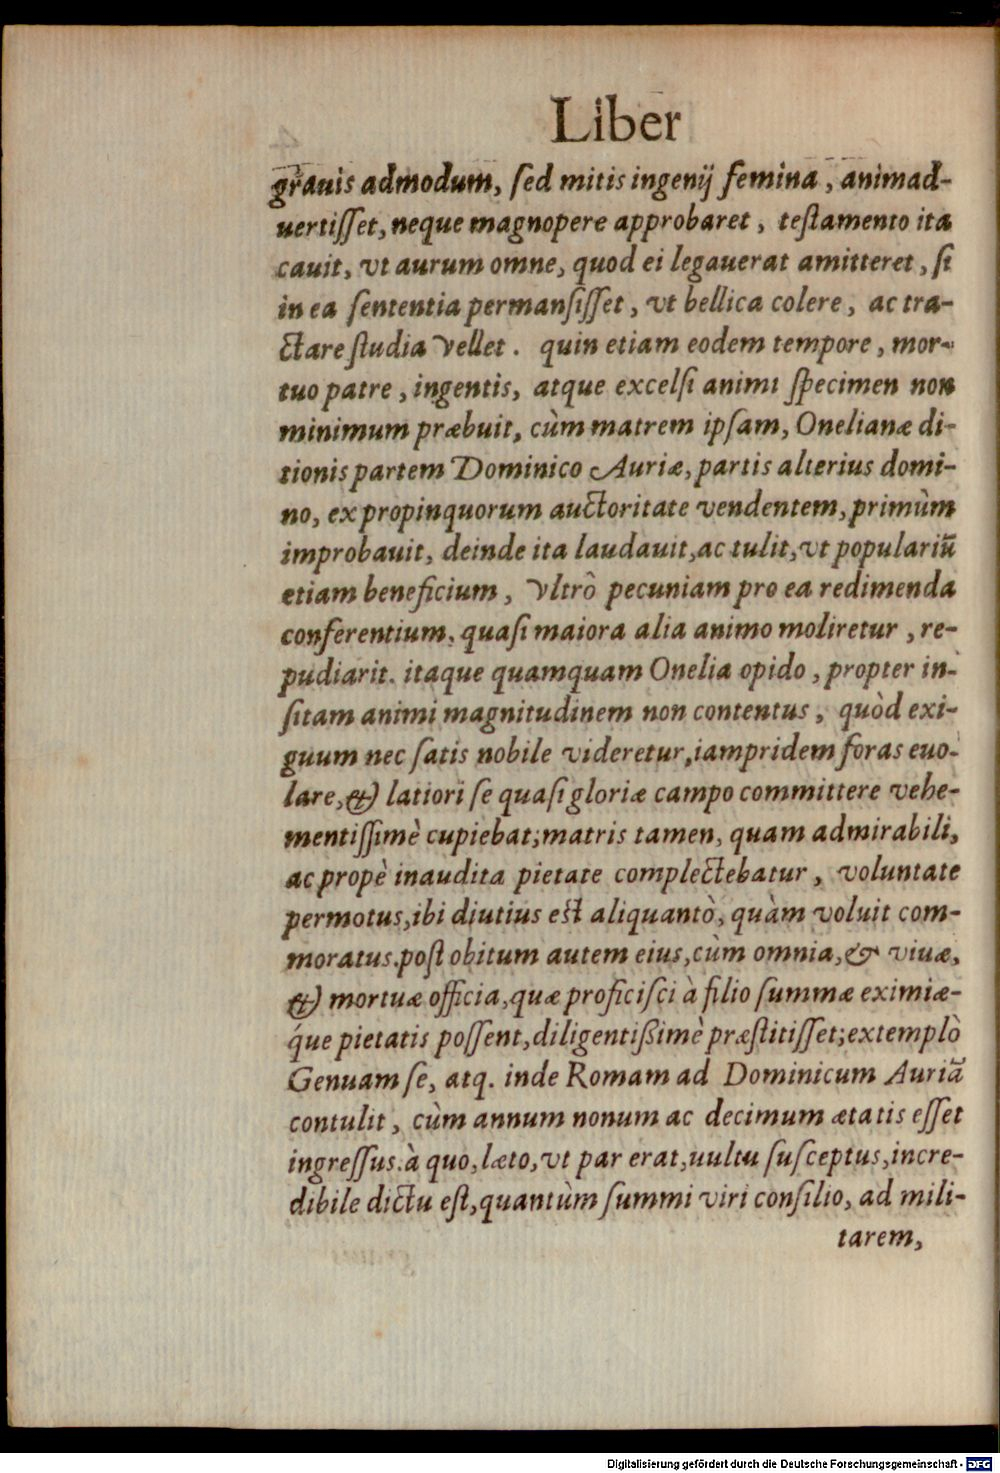 Liber
grauis admodum, ſed mitis ingenij femina, animad-
uertiſſet, neque magnopere approbaret, teſtamento ita
cauit, vt aurum omne, quod ei legauerat amitteret, ſi
in ea ſententia permanſiſſet, vt bellica colere, ac tra-
ctare ſtudia vellet. quin etiam eodem tempore, mor-
tuo patre, ingentis, atque excelſi animi ſpecimen non
minimum præbuit, cùm matrem ipſam, Onelianæ di-
tionis partem Dominico Auriæ, partis alterius domi-
no, ex propinquorum auctoritate vendentem, primùm
improbauit, deinde ita laudauit, ac tulit, vt populariũ
etiam beneficium, vltrò pecuniam pro ea redimenda
conferentium, quaſi maiora alia animo moliretur, re-
pudiarit. itaque quamquam Onelia opido, propter in-
ſitam animi magnitudinem non contentus, quòd exi-
guum nec ſatis nobile videretur, iampridem foras euo-
lare, & latiori ſe quaſi gloriæ campo committere vehe-
mentiſſimè cupiebat; matris tamen, quam admirabili,
ac propè inaudita pietate complectebatur, voluntate
permotus, ibi diutius eſt aliquantò, quàm voluit com-
moratus. poſt obitum autem eius, cùm omnia, & viuæ,
& mortuæ officia, quæ proficiſci à filio ſummæ eximiæ-
q́ue pietatis poſſent, diligentißimè præſtitiſſet; extemplò
Genuam ſe, atq. inde Romam ad Dominicum Auriã
contulit, cùm annum nonum ac decimum ætatis eſſet
ingreſſus. à quo, læto, vt par erat, uultu ſuſceptus, incre-
dibile dictu eſt, quantùm ſummi viri conſilio, ad mili-
tarem,
Digitalisierung gefördert durch die Deutsche Forschungsgemeinschaft - DFG